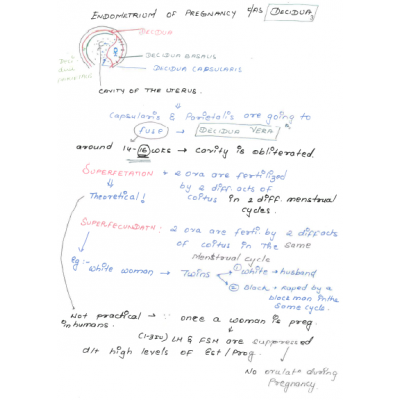 ENDOMETRIUM OF PREGNANCY c/as DECIDUA
DECIDUA
DECIDUA BASALIS
DECIDUA CAPSULARIS
CAVITY OF THE UTERUS.
Capsularis & Parietalis are going to
fuse → DECIDUA VERA
around 14-16 wks → cavity is obliterated.
SUPERFETATION : 2 ova are fertilized
by 2 diff. acts of
Theoretical! coitus in 2 diff. menstrual
cycles.
SUPERFECUNDATN : 2 ova are ferti. by 2 diff acts
of coitus in the same
menstrual cycle
eg:- White woman → Twins ① White → husband
② Black → Raped by a
black man in the
same cycle.
Not practical → ∵ once a woman is preg.
in humans.
LH & FSH are suppressed
d/t high levels of Est/Prog.
No ovulatn during
Pregnancy.